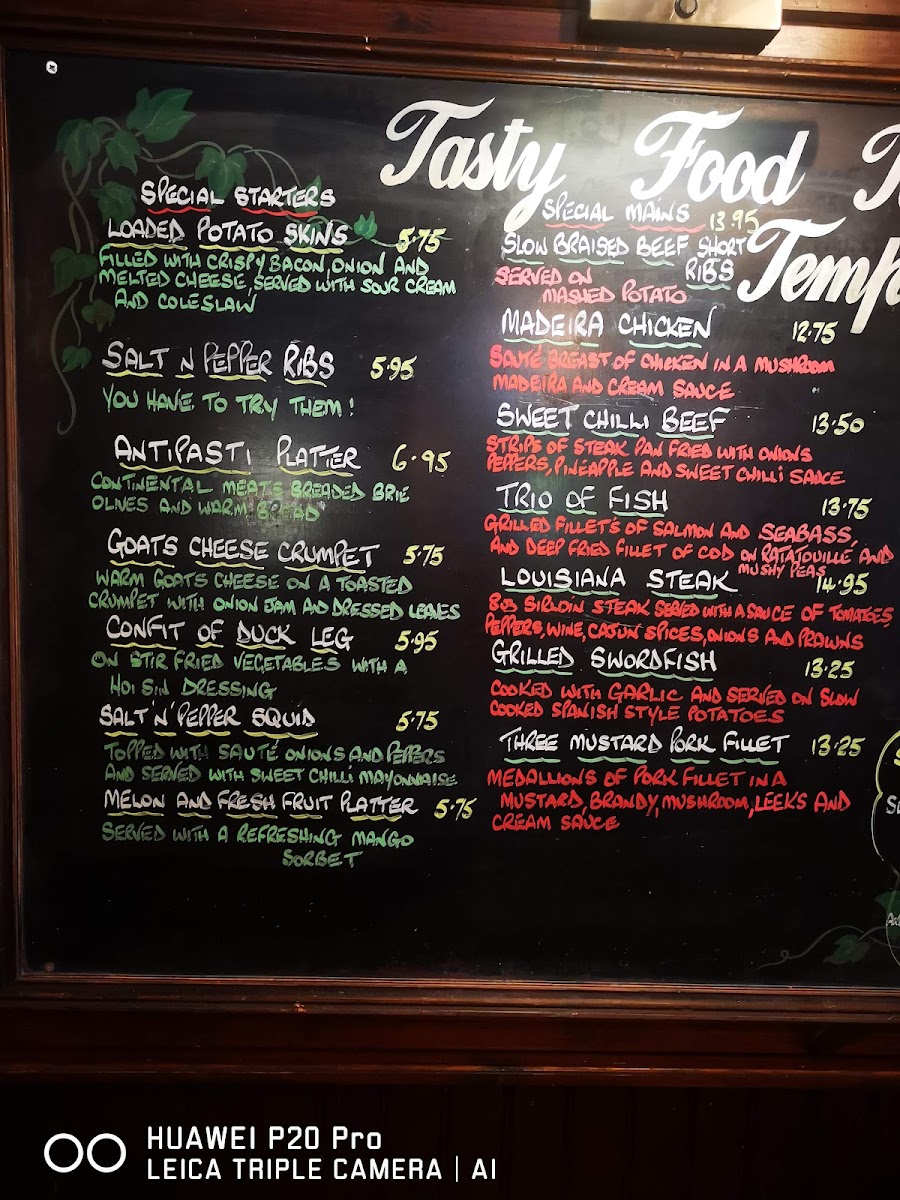 Tasty Food
Temp
SPECIAL STARTERS
LOADED POTATO SKINS 5.75
FILLED WITH CRISPY BACON, ONION AND
MELTED CHEESE, SERVED WITH SOUR CREAM
AND COLESLAW
SALT N PEPPER RIBS 5.95
YOU HAVE TO TRY THEM!
ANTIPASTI PLATTER 6.95
CONTINENTAL MEATS BREADED BRIE
OLIVES AND WARM BREAD
GOATS CHEESE CRUMPET 5.75
WARM GOATS CHEESE ON A TOASTED
CRUMPET WITH ONION JAM AND DRESSED LEAVES
CONFIT OF DUCK LEG 5.95
ON STIR FRIED VEGETABLES WITH A
HOISIN DRESSING
SALT 'N' PEPPER SQUID 5.75
TOPPED WITH SAUTÉ ONIONS AND PEPPERS
AND SERVED WITH SWEET CHILLI MAYONNAISE
MELON AND FRESH FRUIT PLATTER 5.75
SERVED WITH A REFRESHING MANGO
SORBET
SPECIAL MAINS 13.95
SLOW BRAISED BEEF SHORT
RIBS
SERVED ON
MASHED POTATO
MADEIRA CHICKEN 12.75
SAUTÉ BREAST OF CHICKEN IN A MUSHROOM
MADEIRA AND CREAM SAUCE
SWEET CHILLI BEEF 13.50
STRIPS OF STEAK PAN FRIED WITH ONIONS
PEPPERS, PINEAPPLE AND SWEET CHILLI SAUCE
TRIO OF FISH 13.75
GRILLED FILLETS OF SALMON AND SEABASS,
AND DEEP FRIED FILLET OF COD ON RATATOUILLE AND
MUSHY PEAS
LOUISIANA STEAK 14.95
8oz SIRLOIN STEAK SERVED WITH A SAUCE OF TOMATOES,
PEPPERS, WINE, CAJUN SPICES, ONIONS AND PRAWNS
GRILLED SWORDFISH 13.25
COOKED WITH GARLIC AND SERVED ON SLOW
COOKED SPANISH STYLE POTATOES
THREE MUSTARD PORK FILLET 13.25
MEDALLIONS OF PORK FILLET IN A
MUSTARD, BRANDY, MUSHROOM, LEEKS AND
CREAM SAUCE
HUAWEI P20 Pro
LEICA TRIPLE CAMERA | AI